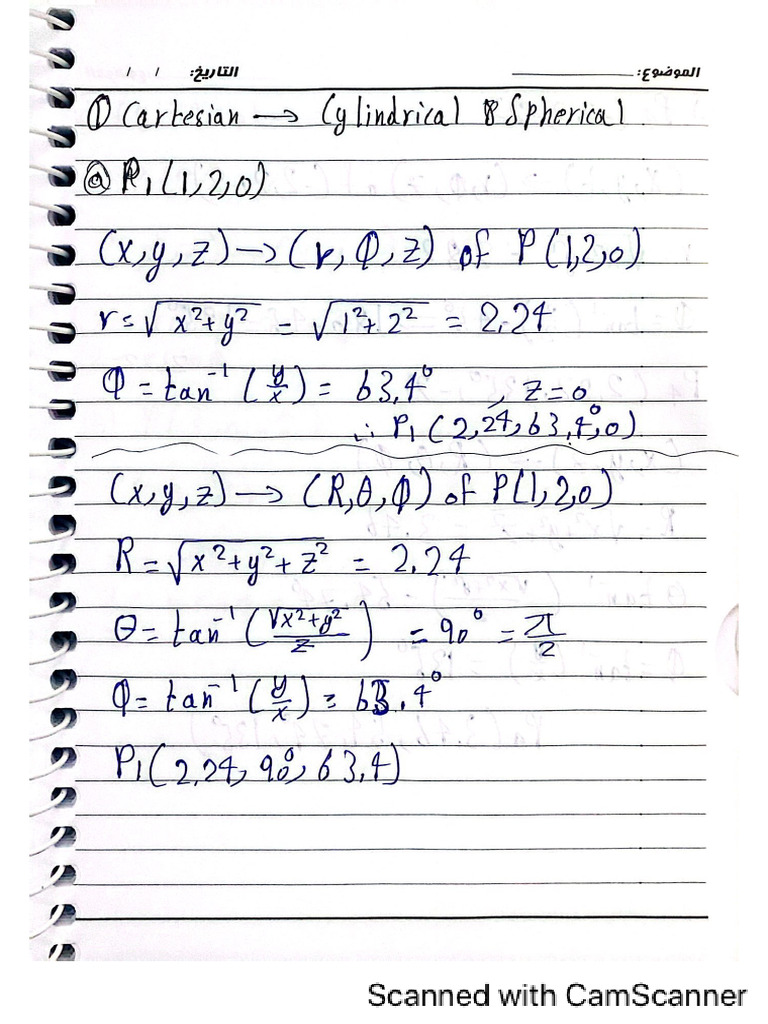 الموضوع: التاريخ: / /
① Cartesian → Cylindrical & Spherical
ⓐ P₁(1,2,0)
(x,y,z) → (r,Φ,z) of P(1,2,0)
r = √x²+y² = √1²+2² = 2.24
Φ = tan⁻¹(y/x) = 63,4° , z=0
∴ P₁(2,24,63,4°,0)
(x,y,z) → (R,θ,Φ) of P(1,2,0)
R = √x²+y²+z² = 2.24
θ = tan⁻¹(√x²+y²/z) = 90° = π/2
Φ = tan⁻¹(y/x) = 63.4°
P₁(2.24, 90°, 63,4)
Scanned with CamScanner